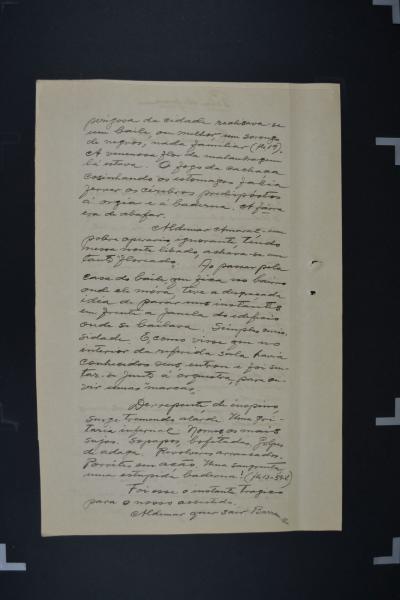 perigosa da cidade realisava-se
um baile, ou melhor, um
de negros, nada familiar (fls 19).
A venenosa flor da malandragem
lá estava. O fogo da cachaça
cosinhando os estomagos, fazia
ferver os cérebros predispostos
á orgia e á baderna. A farra
era de abafar.
Aldemar Amaral, um
pobre operario ignorante, tendo
nessa noite libado, achava-se um
tanto "floreado". Ao passar pela
casa do baile que fica no bairro
onde ele móra, teve a desgraçada
idéa de parar uns instantes
em frente a janela do edificio
onde se bailava. Simples curio-
sidade. E, como visse que no
interior da referida sala havia
conhecidos seus, entrou e foi sen-
tar-se junto á orquestra, para ou-
vir umas "marcas".
Derrepente, de inopino
surge tremendo alarde. Uma gri-
taria infernal. Nomes os mais
sujos. Sopapos, bofetadas, golpes
de adaga. Revolveres arrancados.
Porretes em ação. Uma sangrenta,
uma estupida baderna!
Foi esse o instante tragico
para o nosso assistido.
Aldemar quer sair.